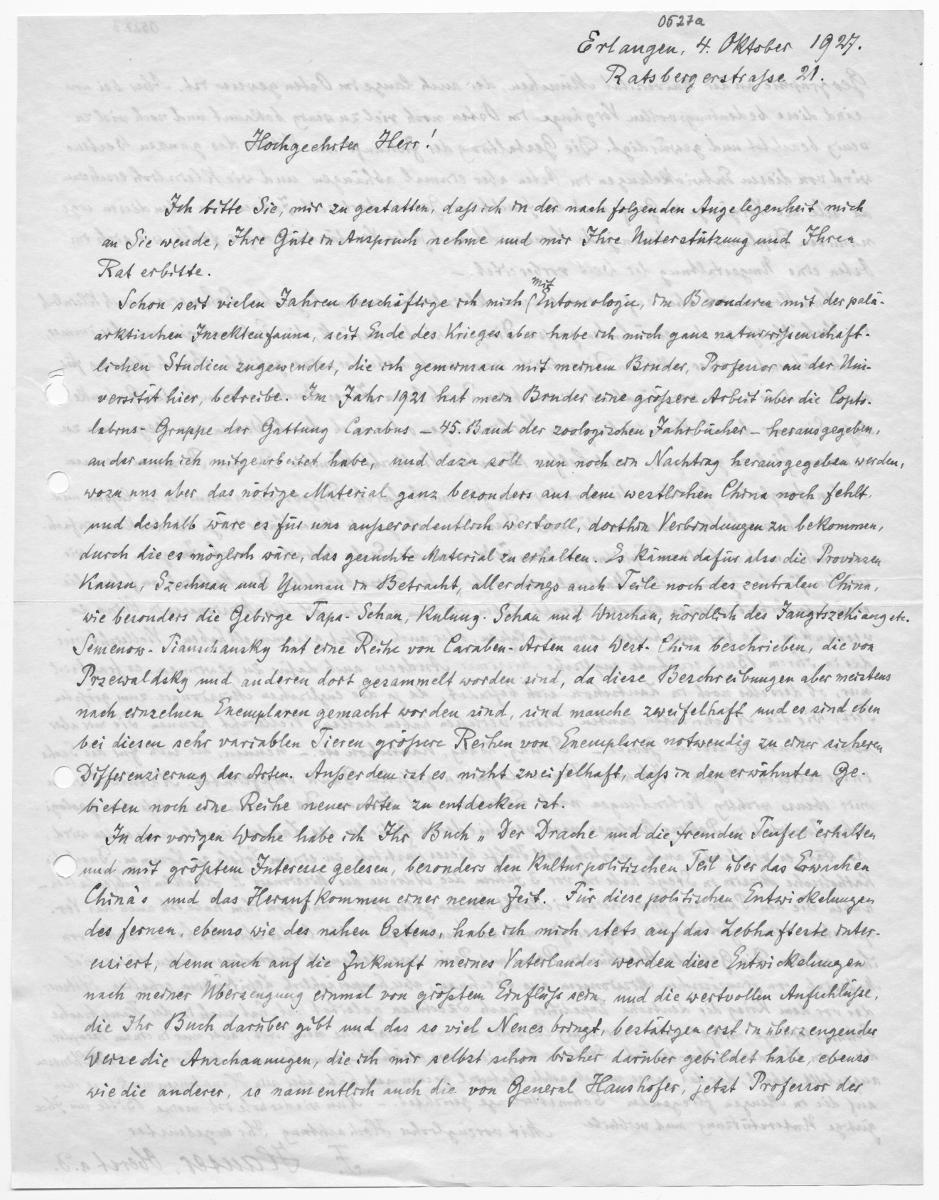 0527a
Erlangen, 4. Oktober 1927.
Ratsbergerstrasse 21.
Hochgeehrter Herr!
Ich bitte Sie, mir zu gestatten, dass ich in der nachfolgenden Angelegenheit mich
an Sie wende, Ihre Güte in Anspruch nehme und mir Ihre Unterstützung und Ihren
Rat erbitte.
mit
Schon seit vielen Jahren beschäftige ich mich Entomologie, im Besonderen mit der palä-
arktischen Insektenfauna, seit Ende des Krieges aber habe ich mich ganz naturwissenschaft-
lichen Studien zugewendet, die ich gemeinsam mit meinem Bruder, Professor an der Uni-
versität hier, betreibe. Im Jahr 1921 hat mein Bruder eine größere Arbeit über die Copto-
labrus-Gruppe der Gattung Carabus – 45. Band der zoologischen Jahrbücher – herausgegeben,
an der auch ich mitgearbeitet habe, und dazu soll nun noch ein Nachtrag herausgegeben werden,
wozu uns aber das nötige Material ganz besonders aus dem westlichen China noch fehlt,
und deshalb wäre es für uns außerordentlich wertvoll, dorthin Verbindungen zu bekommen,
durch die es möglich wäre, das gesuchte Material zu erhalten. Es kämen dafür also die Provinzen
Kansu, Szechuan und Yunnan in Betracht, allerdings auch Teile noch des zentralen China,
wie besonders die Gebirge Tapa-Schan, Kulung-Schan und Wuschan, nördlich des Jangtszekiang etc.
Semenow-Tianschansky hat eine Reihe von Caraben-Arten aus West-China beschrieben, die von
Przewaldsky und anderen dort gesammelt worden sind, da diese Beschreibungen aber meistens
nach einzelnen Exemplaren gemacht worden sind, sind manche zweifelhaft und es sind eben
bei diesen sehr variablen Tieren größere Reihen von Exemplaren notwendig zu einer sicheren
Differenzierung der Arten. Außerdem ist es nicht zweifelhaft, dass in den erwähnten Ge-
bieten noch eine Reihe neuer Arten zu entdecken ist.
In der vorigen Woche habe ich Ihr Buch „Der Drache und die fremden Teufel" erhalten
und mit größtem Interesse gelesen, besonders den kulturpolitischen Teil über das Erwachen
China's und das Heraufkommen einer neuen Zeit. Für diese politischen Entwickelungen
des fernen, ebenso wie des nahen Ostens, habe ich mich stets auf das Lebhafteste inter-
essiert, denn auch auf die Zukunft meines Vaterlandes werden diese Entwickelungen
nach meiner Überzeugung einmal von größtem Einfluß sein, und die wertvollen Aufschlüße,
die Ihr Buch darüber gibt und das so viel Neues bringt, bestätigen erst in überzeugender
Weise die Anschauungen, die ich mir selbst schon bisher darüber gebildet habe, ebenso
wie die anderer, so namentlich auch die von General Haushofer, jetzt Professor der